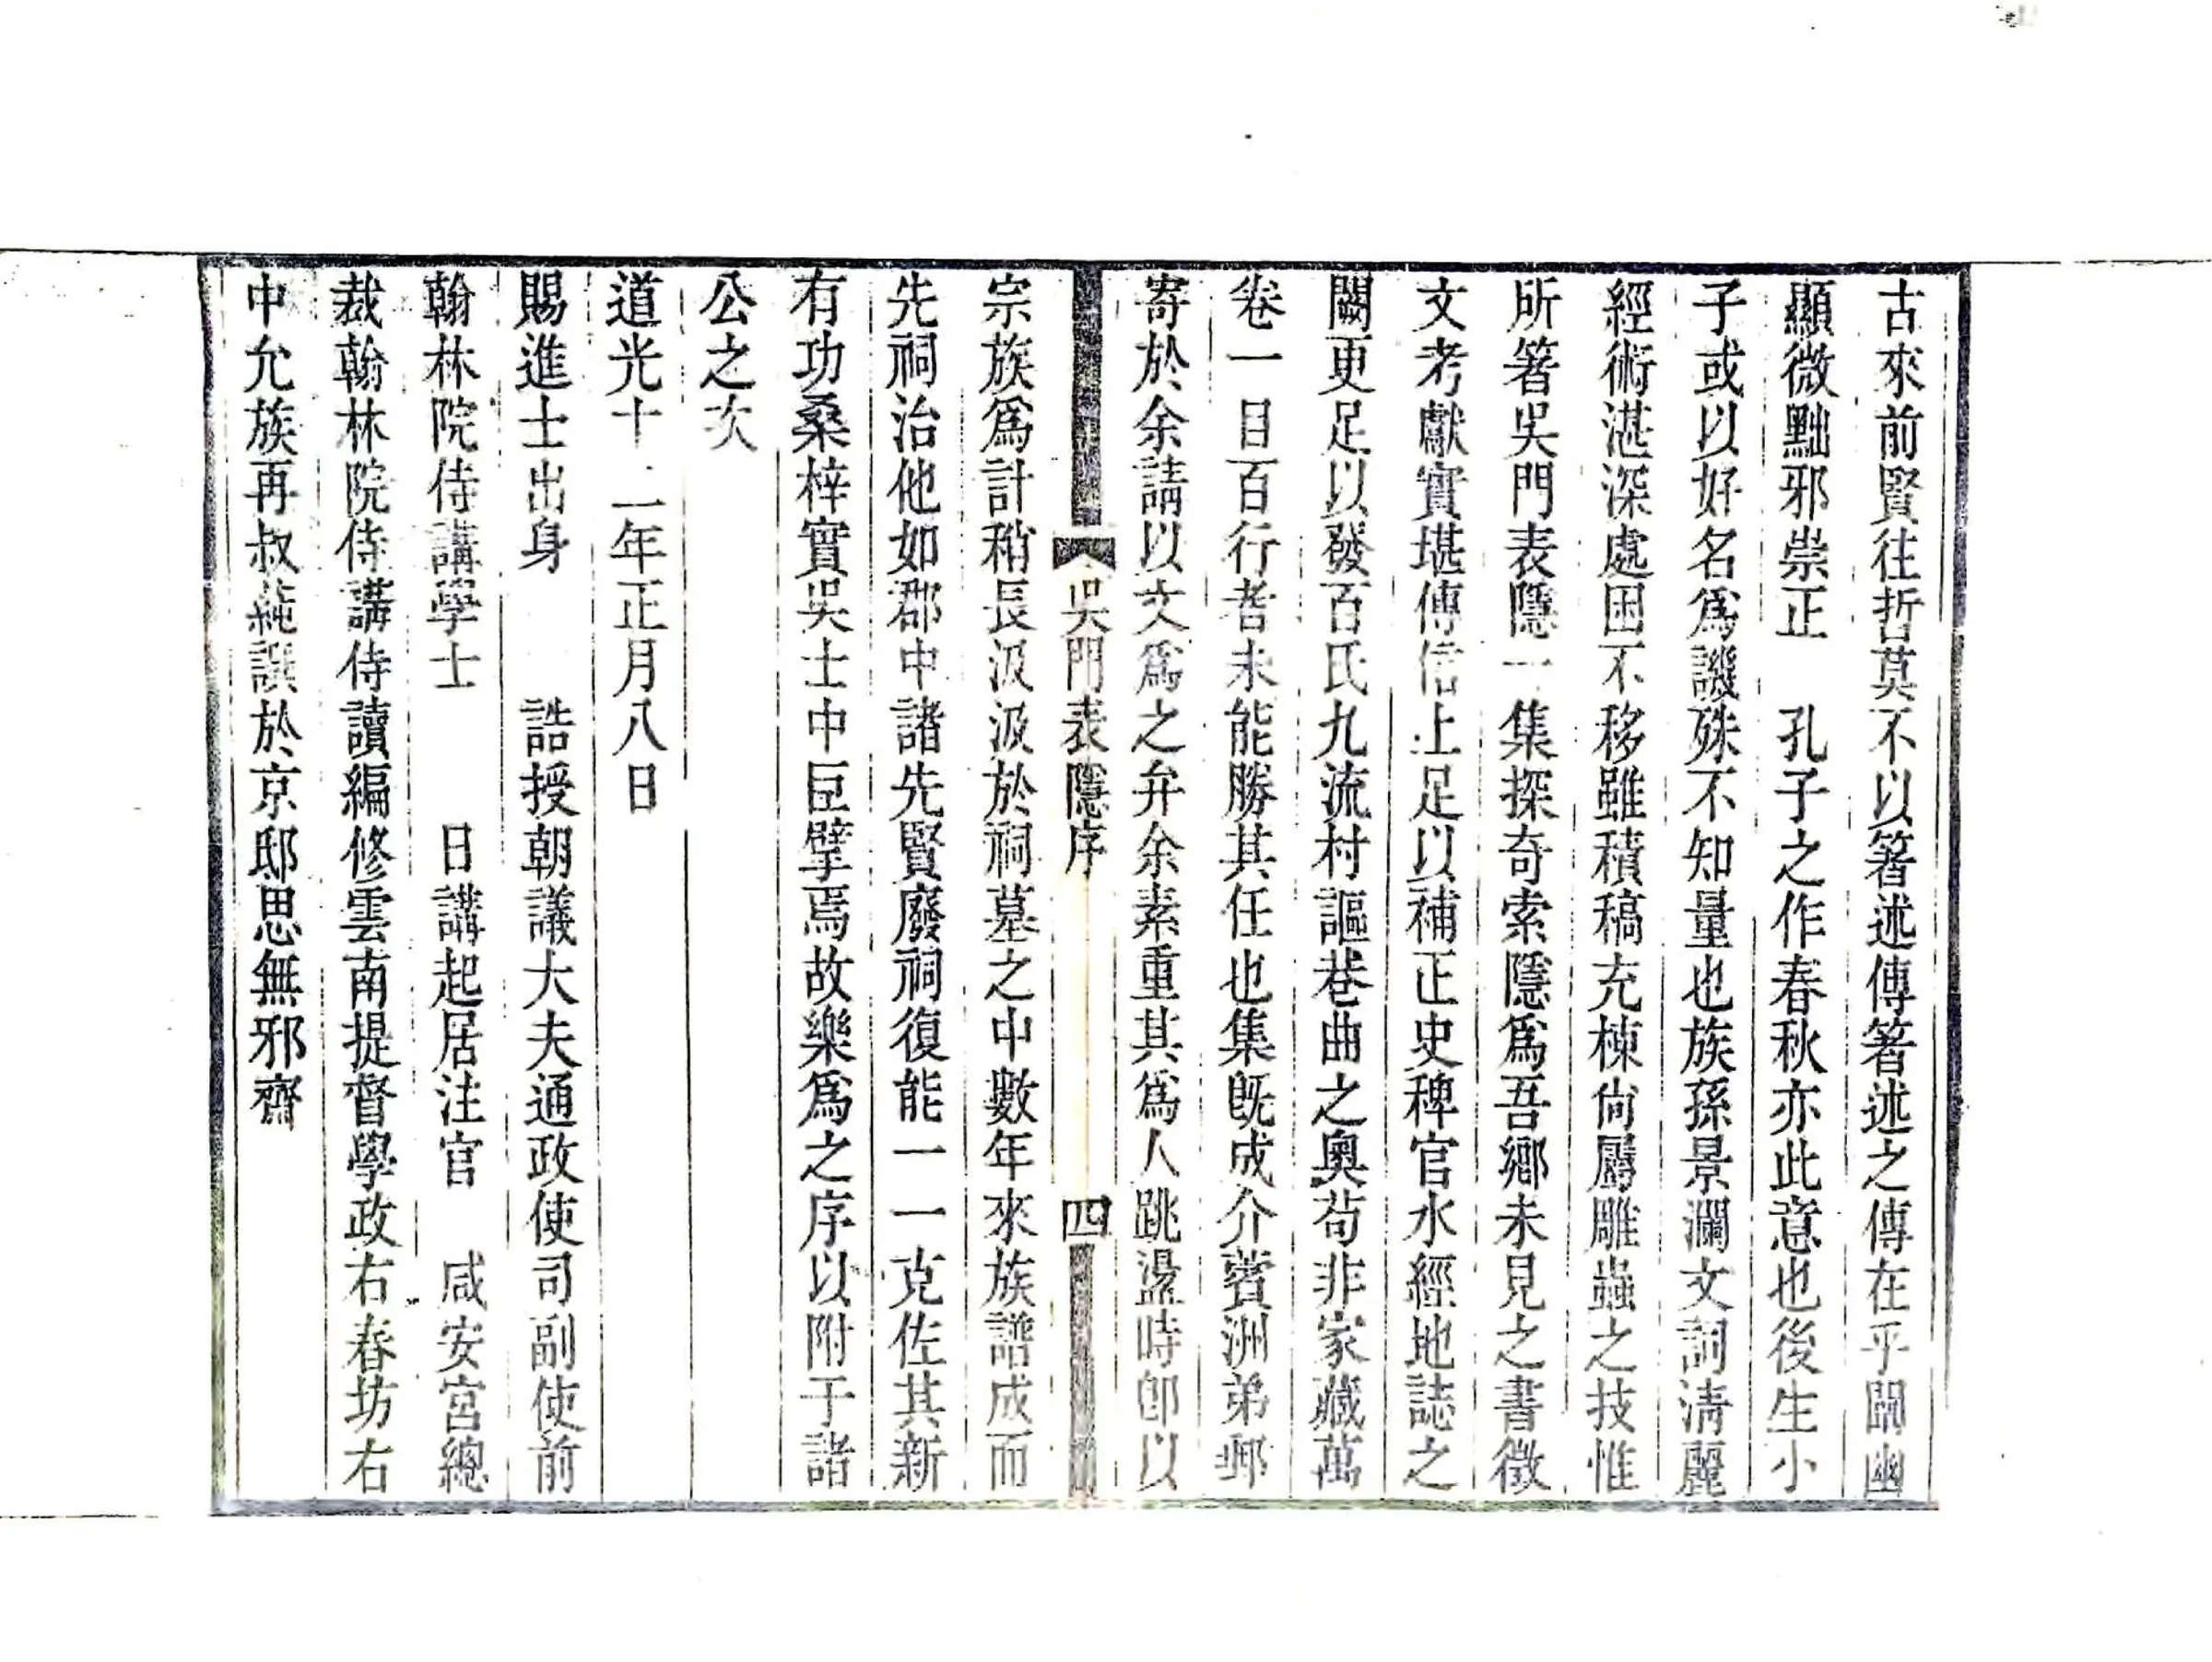 古來前賢往哲莫不以箸述傳箸述之傳在乎闡幽
顯微黜邪崇正　孔子之作春秋亦此意也後生小
子或以好名爲譏殊不知量也族孫景瀾文詞淸麗
經術湛深處困不移雖積稿充棟尙屬雕蟲之技惟
所箸吳門表隱一集探奇索隱爲吾鄉未見之書徵
文考獻實堪傳信上足以補正史稗官水經地誌之
闕更足以發百氏九流村謳巷曲之奧苟非家藏萬
卷一目百行者未能勝其任也集旣成介薲洲弟郵
寄於余請以文爲之弁余素重其爲人跳盪時卽以
吳門表隱序　四
宗族爲計稍長汲汲於祠墓之中數年來族譜成而
先祠治他如郡中諸先賢廢祠復能一一克佐其新
有功桑梓實吳士中巨擘焉故樂爲之序以附于諸
公之次
道光十一年正月八日
賜進士出身　誥授朝議大夫通政使司副使前
翰林院侍講學士　日講起居注官　咸安宮總
裁翰林院侍講侍讀編修雲南提督學政右春坊右
中允族再叔蒓譔於京邸思無邪齋